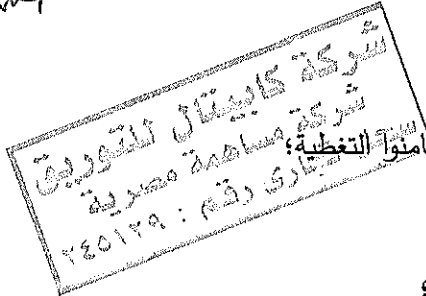 شركة كابيتال للتوريق
شركة مساهمة مصرية
سجل تجارى رقم : ٢٤٥١٢٩
ضامنوا التغطية؛